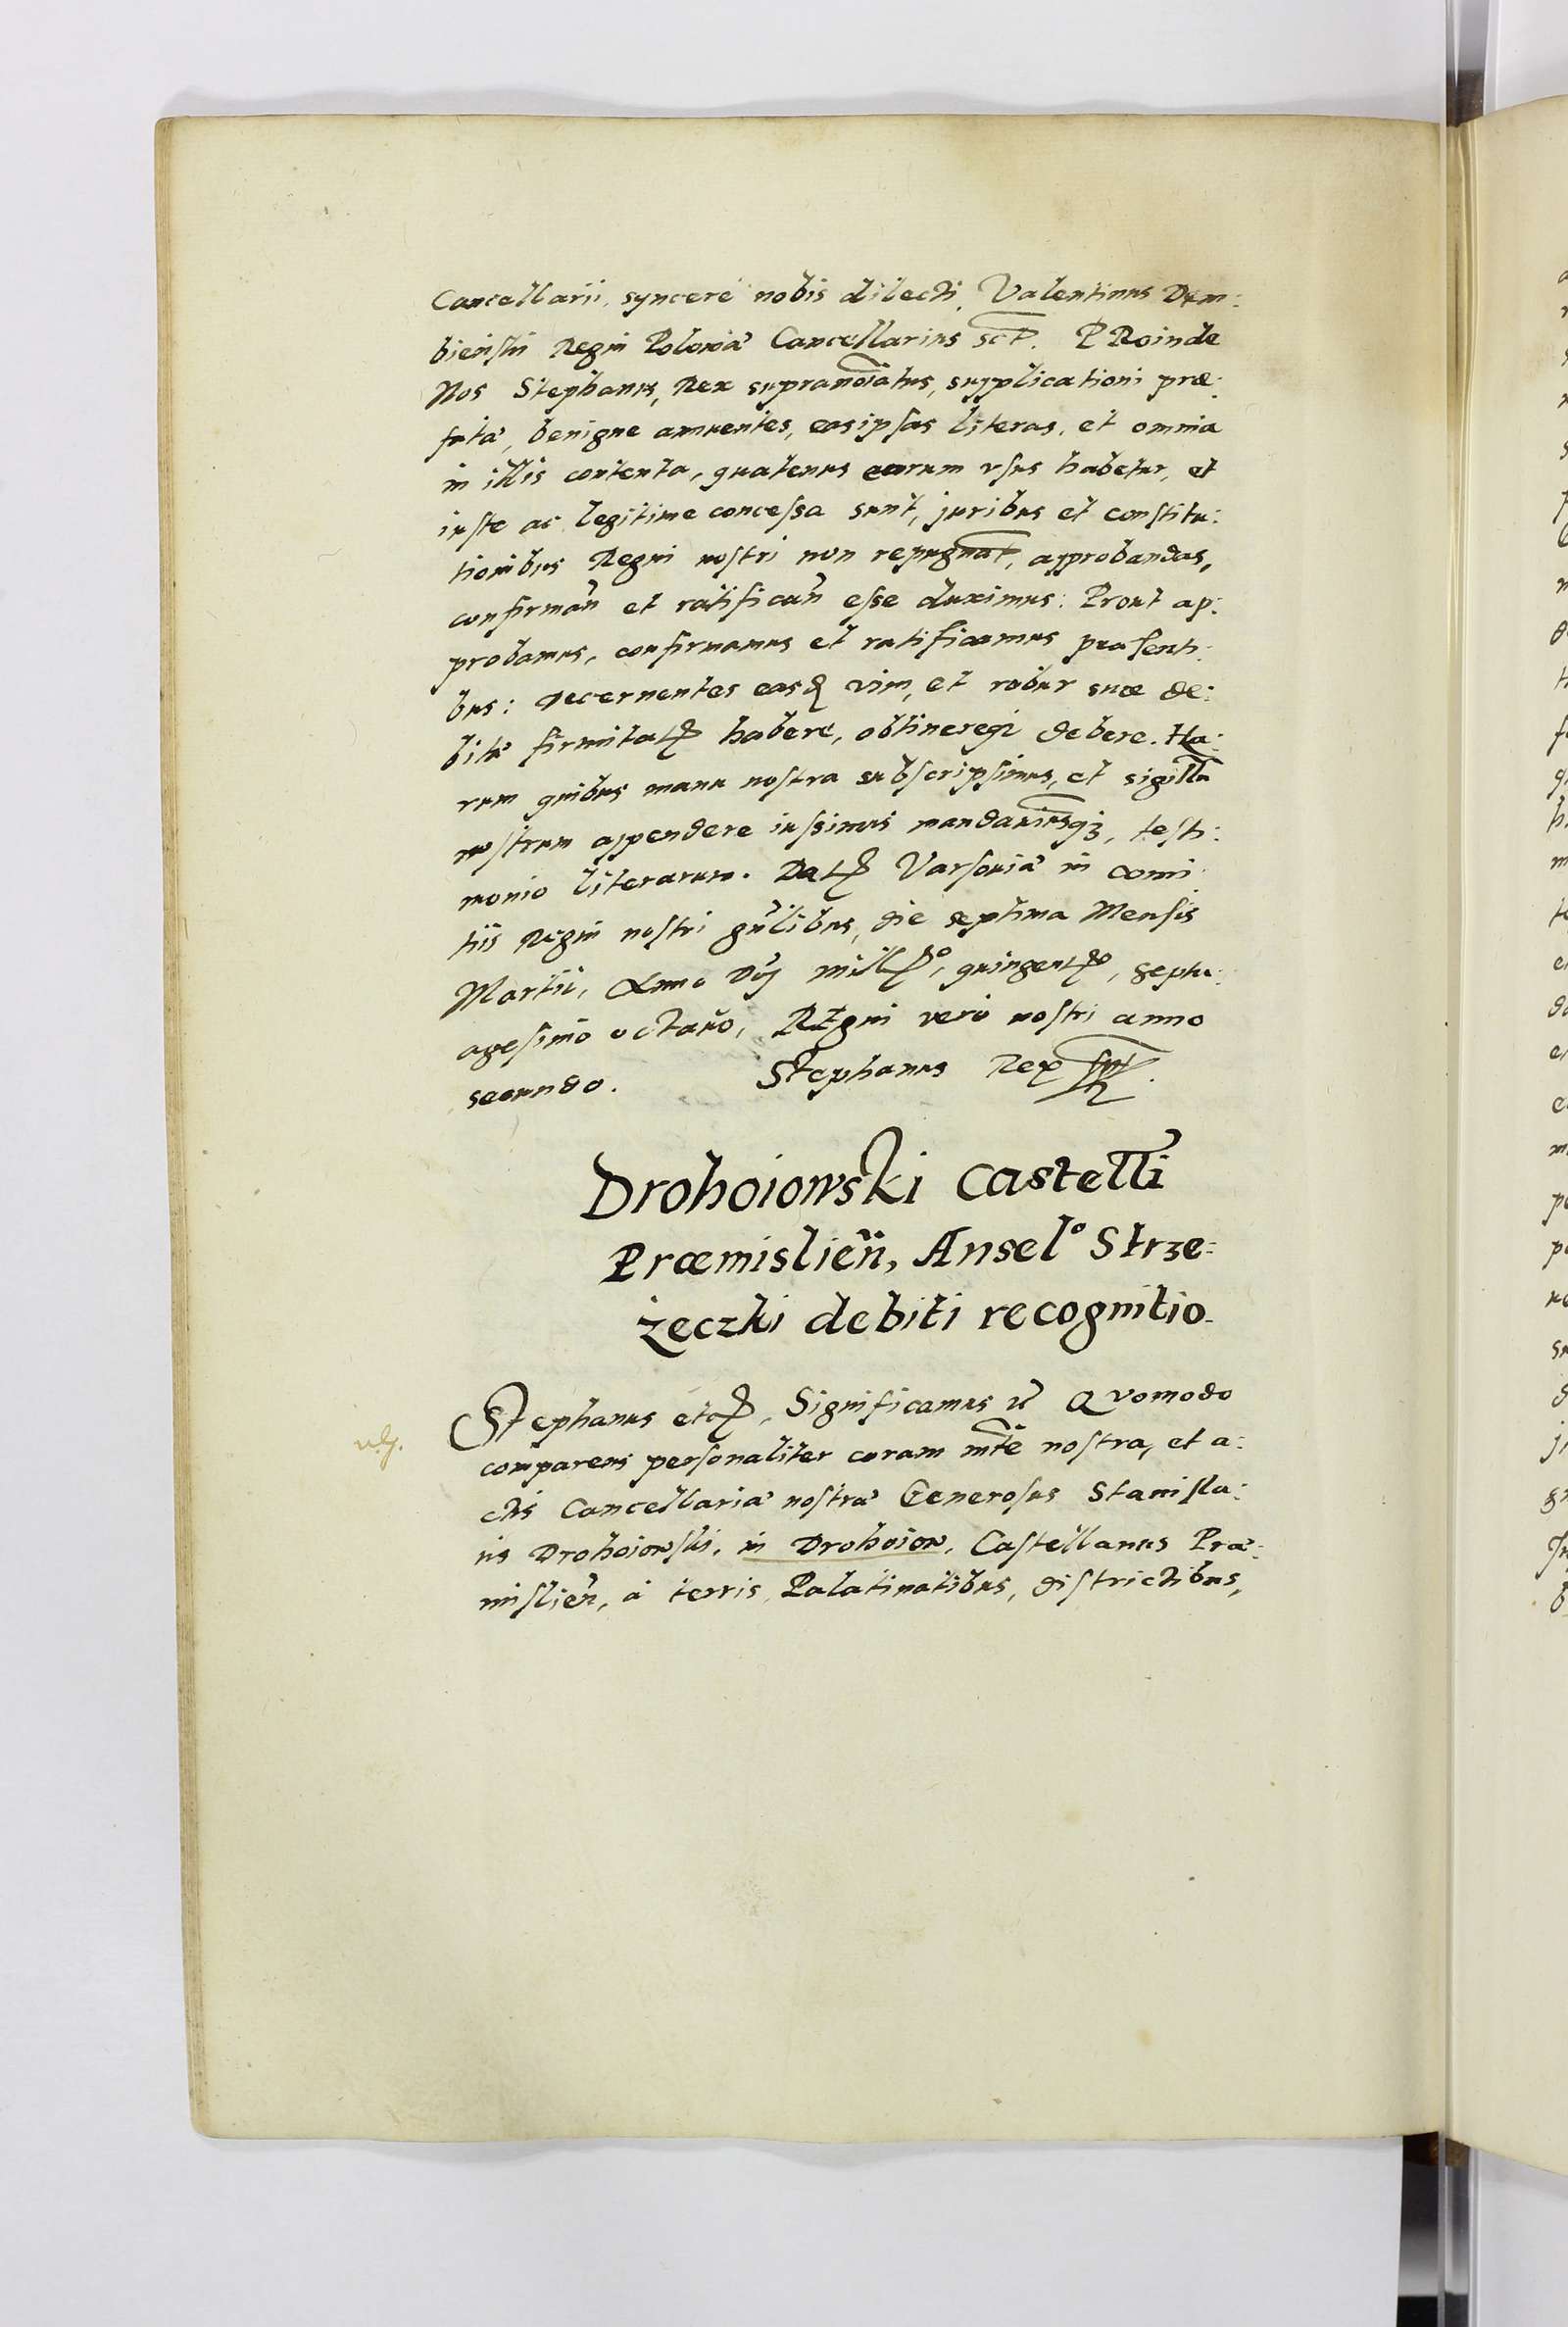 Cancellarii, syncerè nobis dilecti. Valentinus Dem:
bienski Regni Poloniæ Cancellarius sct. PRoinde
Nos Stephanus, Rex supranoĩatus, supplicationi præ:
fatæ, benigne annuentes, eas ipsas literas, et omnia
in illis contenta, quatenus earum vsus habetur, et
iuste ac legitime concessa sunt, juribus et constitu:
tionibus Regni nostri non repugnat, approbandas,
confirmañ et ratificañ esse duximus: Prout ap:
probamus, confirmamus et ratificamus præsenti:
bus: decernentes easd vim, et robur suæ de:
bitæ firmitat habere, obtineregȝ debere. Ha:
rum quibus manu nostra subscripsimus, et sigillũ
nostrum appendere iussimus mandauimusqȝ, testi:
monio literarum. Dat Varsouiæ in comi
tiis Regni nostri gñlibus, die septima Mensis
Martii, Anno Dnj millo, quingento, septu:
agesimo octauo, REgni verò nostri anno
secundo. Stephanus Rex
Drohoiowski Castelli
Præmislieñ, Anselº Strze:
żeczki debiti recognitio.
Stephanus etc, Significamus ẽ Qvomodo
comparens personaliter coram mte nostra, et a:
ctis Cancellariæ nostræ Generosus Stanisla:
us Drohoiowski, in Drohoiow, Castellanus Præ:
mislieñ, à terris, Palatinatibus, districtibus,